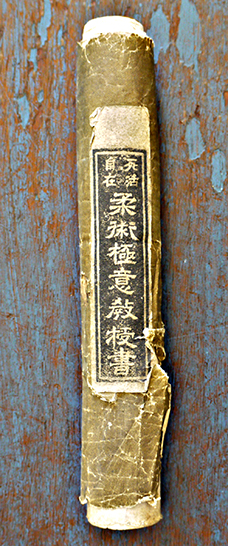 死活自在
柔術極意教授書